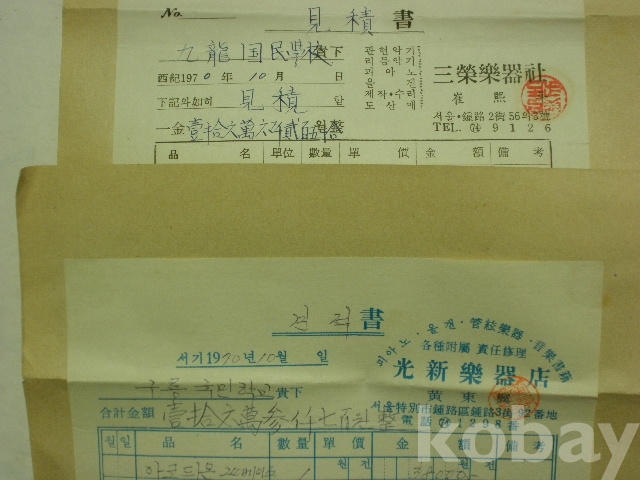 No. 見積書
九龍国民學校 貴下
西紀1970年 10月 日
下記와如히 見積 함
一金壹拾六萬六仟貳百
관현악기
리듬악기
피아노
제작·수리
도산매
三榮樂器社
崔熙
서울·鍾路2街56의3號
TEL. 74 9126
品名 單位 數量 單價 金額 備考
견적書
서기1970년10월 일
구룡국민학교 貴下
合計金額 壹拾六萬參仟七百원整
피아노·올겐·管絃樂器·音樂書籍
各種附屬 責任修理
光新樂器店
黃東
서울特別市鍾路區鍾路3街92番地
電話 74 1298番
月日 品名 數量 單價 金額 備考
원전 원전
kobay